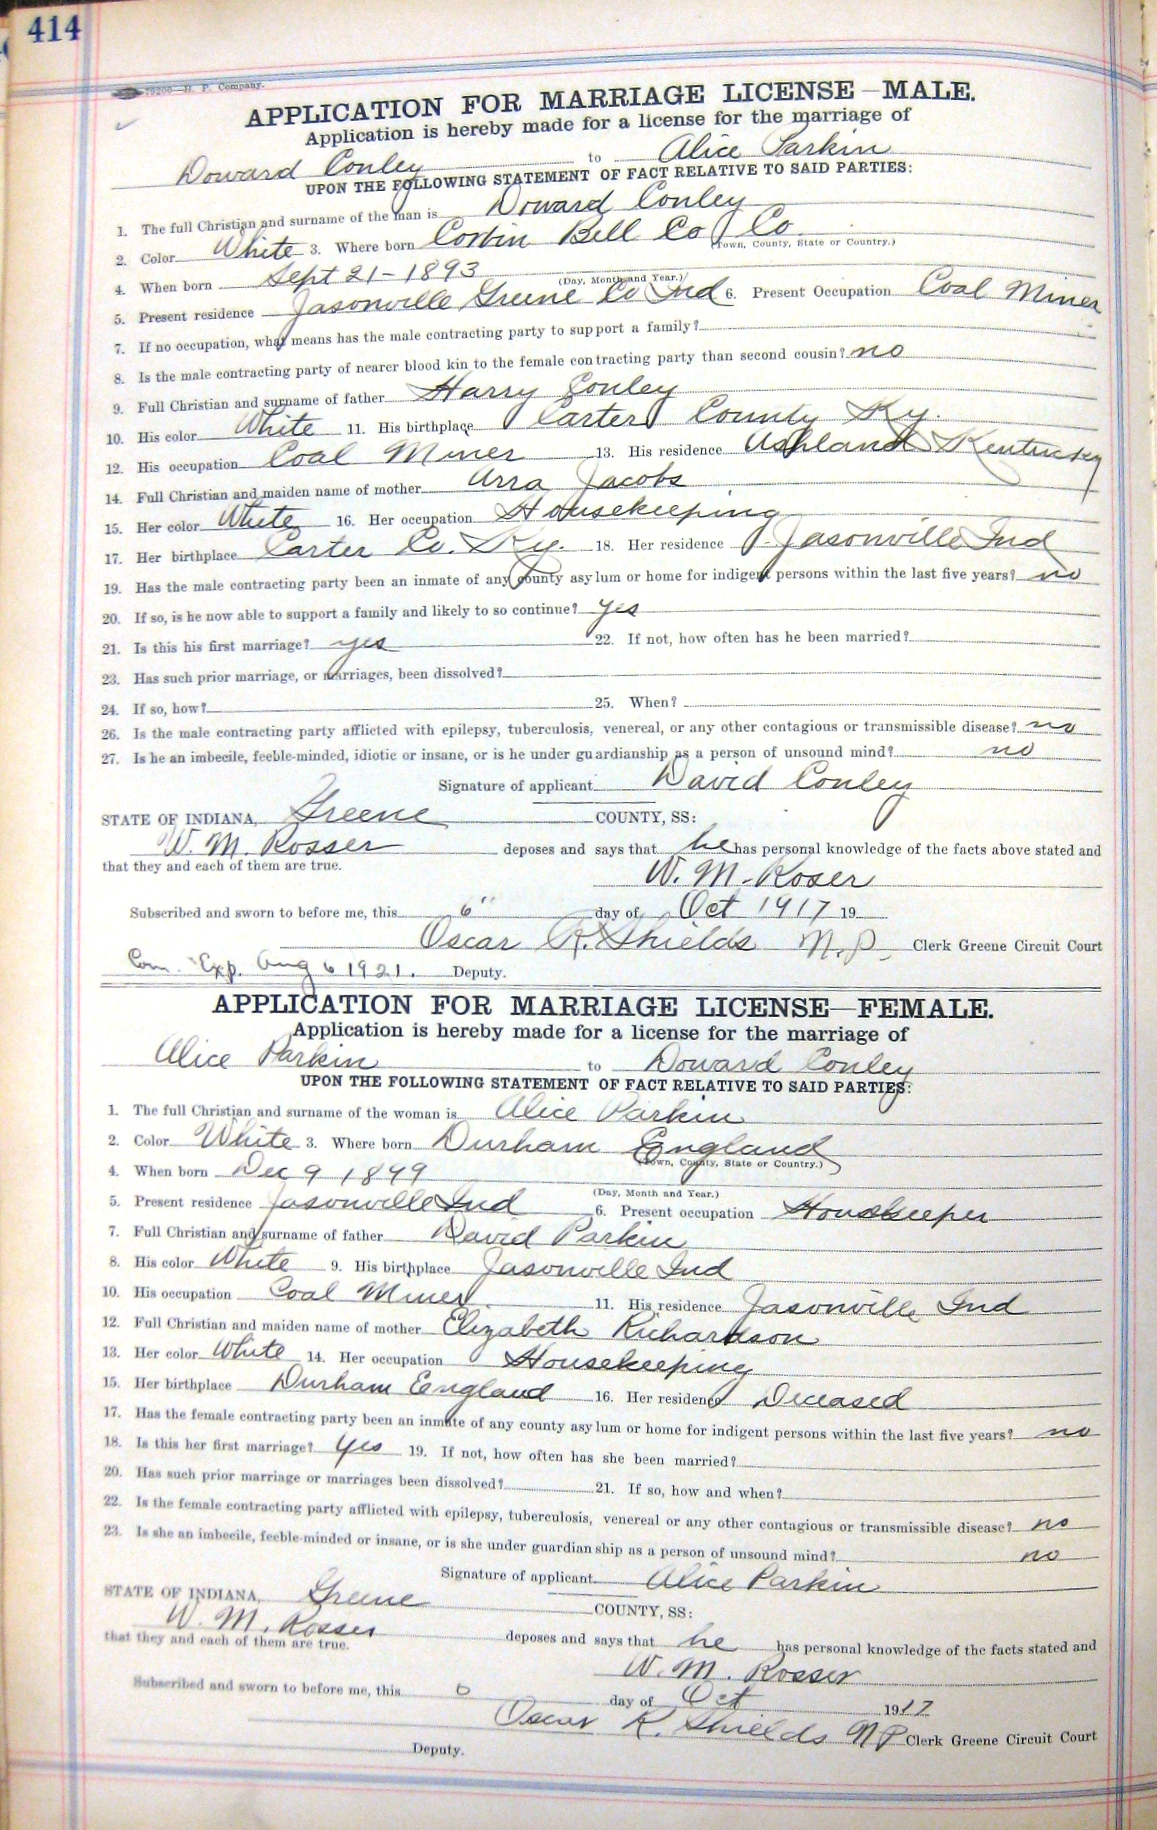 414
79200—H. P. Company.
APPLICATION FOR MARRIAGE LICENSE—MALE.
Application is hereby made for a license for the marriage of
Doward Conley to Alice Parkin
UPON THE FOLLOWING STATEMENT OF FACT RELATIVE TO SAID PARTIES:
1. The full Christian and surname of the man is Doward Conley
2. Color White 3. Where born Corbin Bell Co Co.
(Town, County, State or Country.)
4. When born Sept 21-1893
(Day, Month and Year.)
5. Present residence Jasonville Greene Co Ind 6. Present Occupation Coal Miner
7. If no occupation, what means has the male contracting party to support a family?
8. Is the male contracting party of nearer blood kin to the female contracting party than second cousin? no
9. Full Christian and surname of father Harry Conley
10. His color White 11. His birthplace Carter County Ky.
12. His occupation Coal Miner 13. His residence Ashland Kentucky
14. Full Christian and maiden name of mother Arra Jacobs
15. Her color White 16. Her occupation Housekeeping
17. Her birthplace Carter Co. Ky. 18. Her residence Jasonville Ind
19. Has the male contracting party been an inmate of any county asylum or home for indigent persons within the last five years? no
20. If so, is he now able to support a family and likely to so continue? yes
21. Is this his first marriage? yes 22. If not, how often has he been married?
23. Has such prior marriage, or marriages, been dissolved?
24. If so, how? 25. When?
26. Is the male contracting party afflicted with epilepsy, tuberculosis, venereal, or any other contagious or transmissible disease? no
27. Is he an imbecile, feeble-minded, idiotic or insane, or is he under guardianship as a person of unsound mind? no
Signature of applicant David Conley
STATE OF INDIANA, Greene COUNTY, SS:
W. M. Rosser deposes and says that he has personal knowledge of the facts above stated and
that they and each of them are true.
W. M. Roser
Subscribed and sworn to before me, this 6" day of Oct 1917 19
Oscar R. Shields N.P. Clerk Greene Circuit Court
Com. Exp. Aug 6 1921. Deputy.
APPLICATION FOR MARRIAGE LICENSE—FEMALE.
Application is hereby made for a license for the marriage of
Alice Parkin to Doward Conley
UPON THE FOLLOWING STATEMENT OF FACT RELATIVE TO SAID PARTIES:
1. The full Christian and surname of the woman is Alice Parkin
2. Color White 3. Where born Durham England
(Town, County, State or Country.)
4. When born Dec 9 1899
(Day, Month and Year.)
5. Present residence Jasonville Ind 6. Present occupation Housekeeper
7. Full Christian and surname of father David Parkin
8. His color White 9. His birthplace Jasonville Ind
10. His occupation Coal Miner 11. His residence Jasonville Ind
12. Full Christian and maiden name of mother Elizabeth Richardson
13. Her color White 14. Her occupation Housekeeping
15. Her birthplace Durham England 16. Her residence Deceased
17. Has the female contracting party been an inmate of any county asylum or home for indigent persons within the last five years? no
18. Is this her first marriage? Yes 19. If not, how often has she been married?
20. Has such prior marriage or marriages been dissolved? 21. If so, how and when?
22. Is the female contracting party afflicted with epilepsy, tuberculosis, venereal or any other contagious or transmissible disease? no
23. Is she an imbecile, feeble-minded or insane, or is she under guardianship as a person of unsound mind? no
Signature of applicant Alice Parkin
STATE OF INDIANA, Greene COUNTY, SS:
W. M. Rosser deposes and says that he has personal knowledge of the facts stated and
that they and each of them are true.
W. M. Rosser
Subscribed and sworn to before me, this 6 day of Oct 1917
Oscar R. Shields NP Clerk Greene Circuit Court
Deputy.